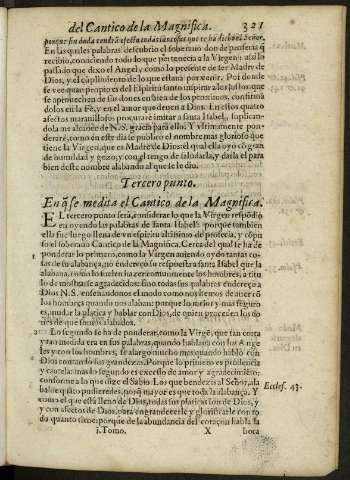 del Cantico de la Magnifica. 321
porque sin duda tendrá efecto todas las cosas que te ha dicho el Señor.
En las quales palabras descubrio el soberano don de profecia q̃
recibio, conociendo todo lo que pertenecia a la Virgen: assi lo
passado que dixo el Angel, como lo presente de ser Madre de
Dios, y el cũplimiento de lo que estaua por venir. Por donde
se vee quan propio es del Espiritu santo inspirar a los justos que
se aprouechen de sus dones en bien de los proximos, confirmã
dolos en la Fè, y en el amor que deuen a Dios. En estos quatro
afectos marauillosos procurarè imitar a santa Isabel, suplican-
dola me alcance de N. S. gracia para ello. Y vltimamente pon
derarè, como en este dia se publico el nombre mas glorioso que
tiene la Virgen, que es Madre de Dios: el qual ella oyò cõ gran
de humildad y gozo, y con el tengo de saludarla, y darla el para
bien deste nombre alabando al que se le dio.
Tercero punto.
En q̃ se medita el Cantico de la Magnifica.
EL tercero punto serà, cõsiderar lo que la Virgen respõdio
en oyendo las palabras de santa Isabel: porque tambien
ella fue luego llena de vn espiritu altissimo de profecia, y cõpu
so el soberano Cantico de la Magnifica. Cerca del qual se ha de
1 ponderar lo primero, como la Virgen auiendo oydo tantas co-
sas de su alabança, no endereçò su respuesta a santa Isabel que la
alabaua, como lo suelen hazer comunmente los hombres, a titu
lo de mostrarse agradecidos: sino todas sus palabras endereçò a
Dios N. S. enseñandonos el modo como nos hemos de auer cõ
los hombres quando nos alaban: porque lo mejor y mas seguro
es, mudar la platica y hablar con Dios, de quien proceden los do
nes de que somos alabados.
2 Lo segundo se ha de ponderar, como la Virgẽ, que tan corta
y tan medida era en sus palabras, quando hablaua con los Ange
les y con los hombres, se alargò mucho mas quando hablò con
Dios contando sus grandezas. Porque lo primero es prudencia
y cautela: mas lo segundo es excesso de amor y agradecimiẽto:
conforme a lo que dize el Sabio. Los que bendezis al Señor, ala
balde quãto pudieredes, porq̃ mayor es que toda la alabança. Y Eccles. 43.
como el que está lleno de Dios, todas sus platicas son de Dios, y
con afectos de Dios, para engrandecerle y glorificarle con to
do quanto tiene: porque de la abundancia del coraçon habla la
i. Tomo. X boca